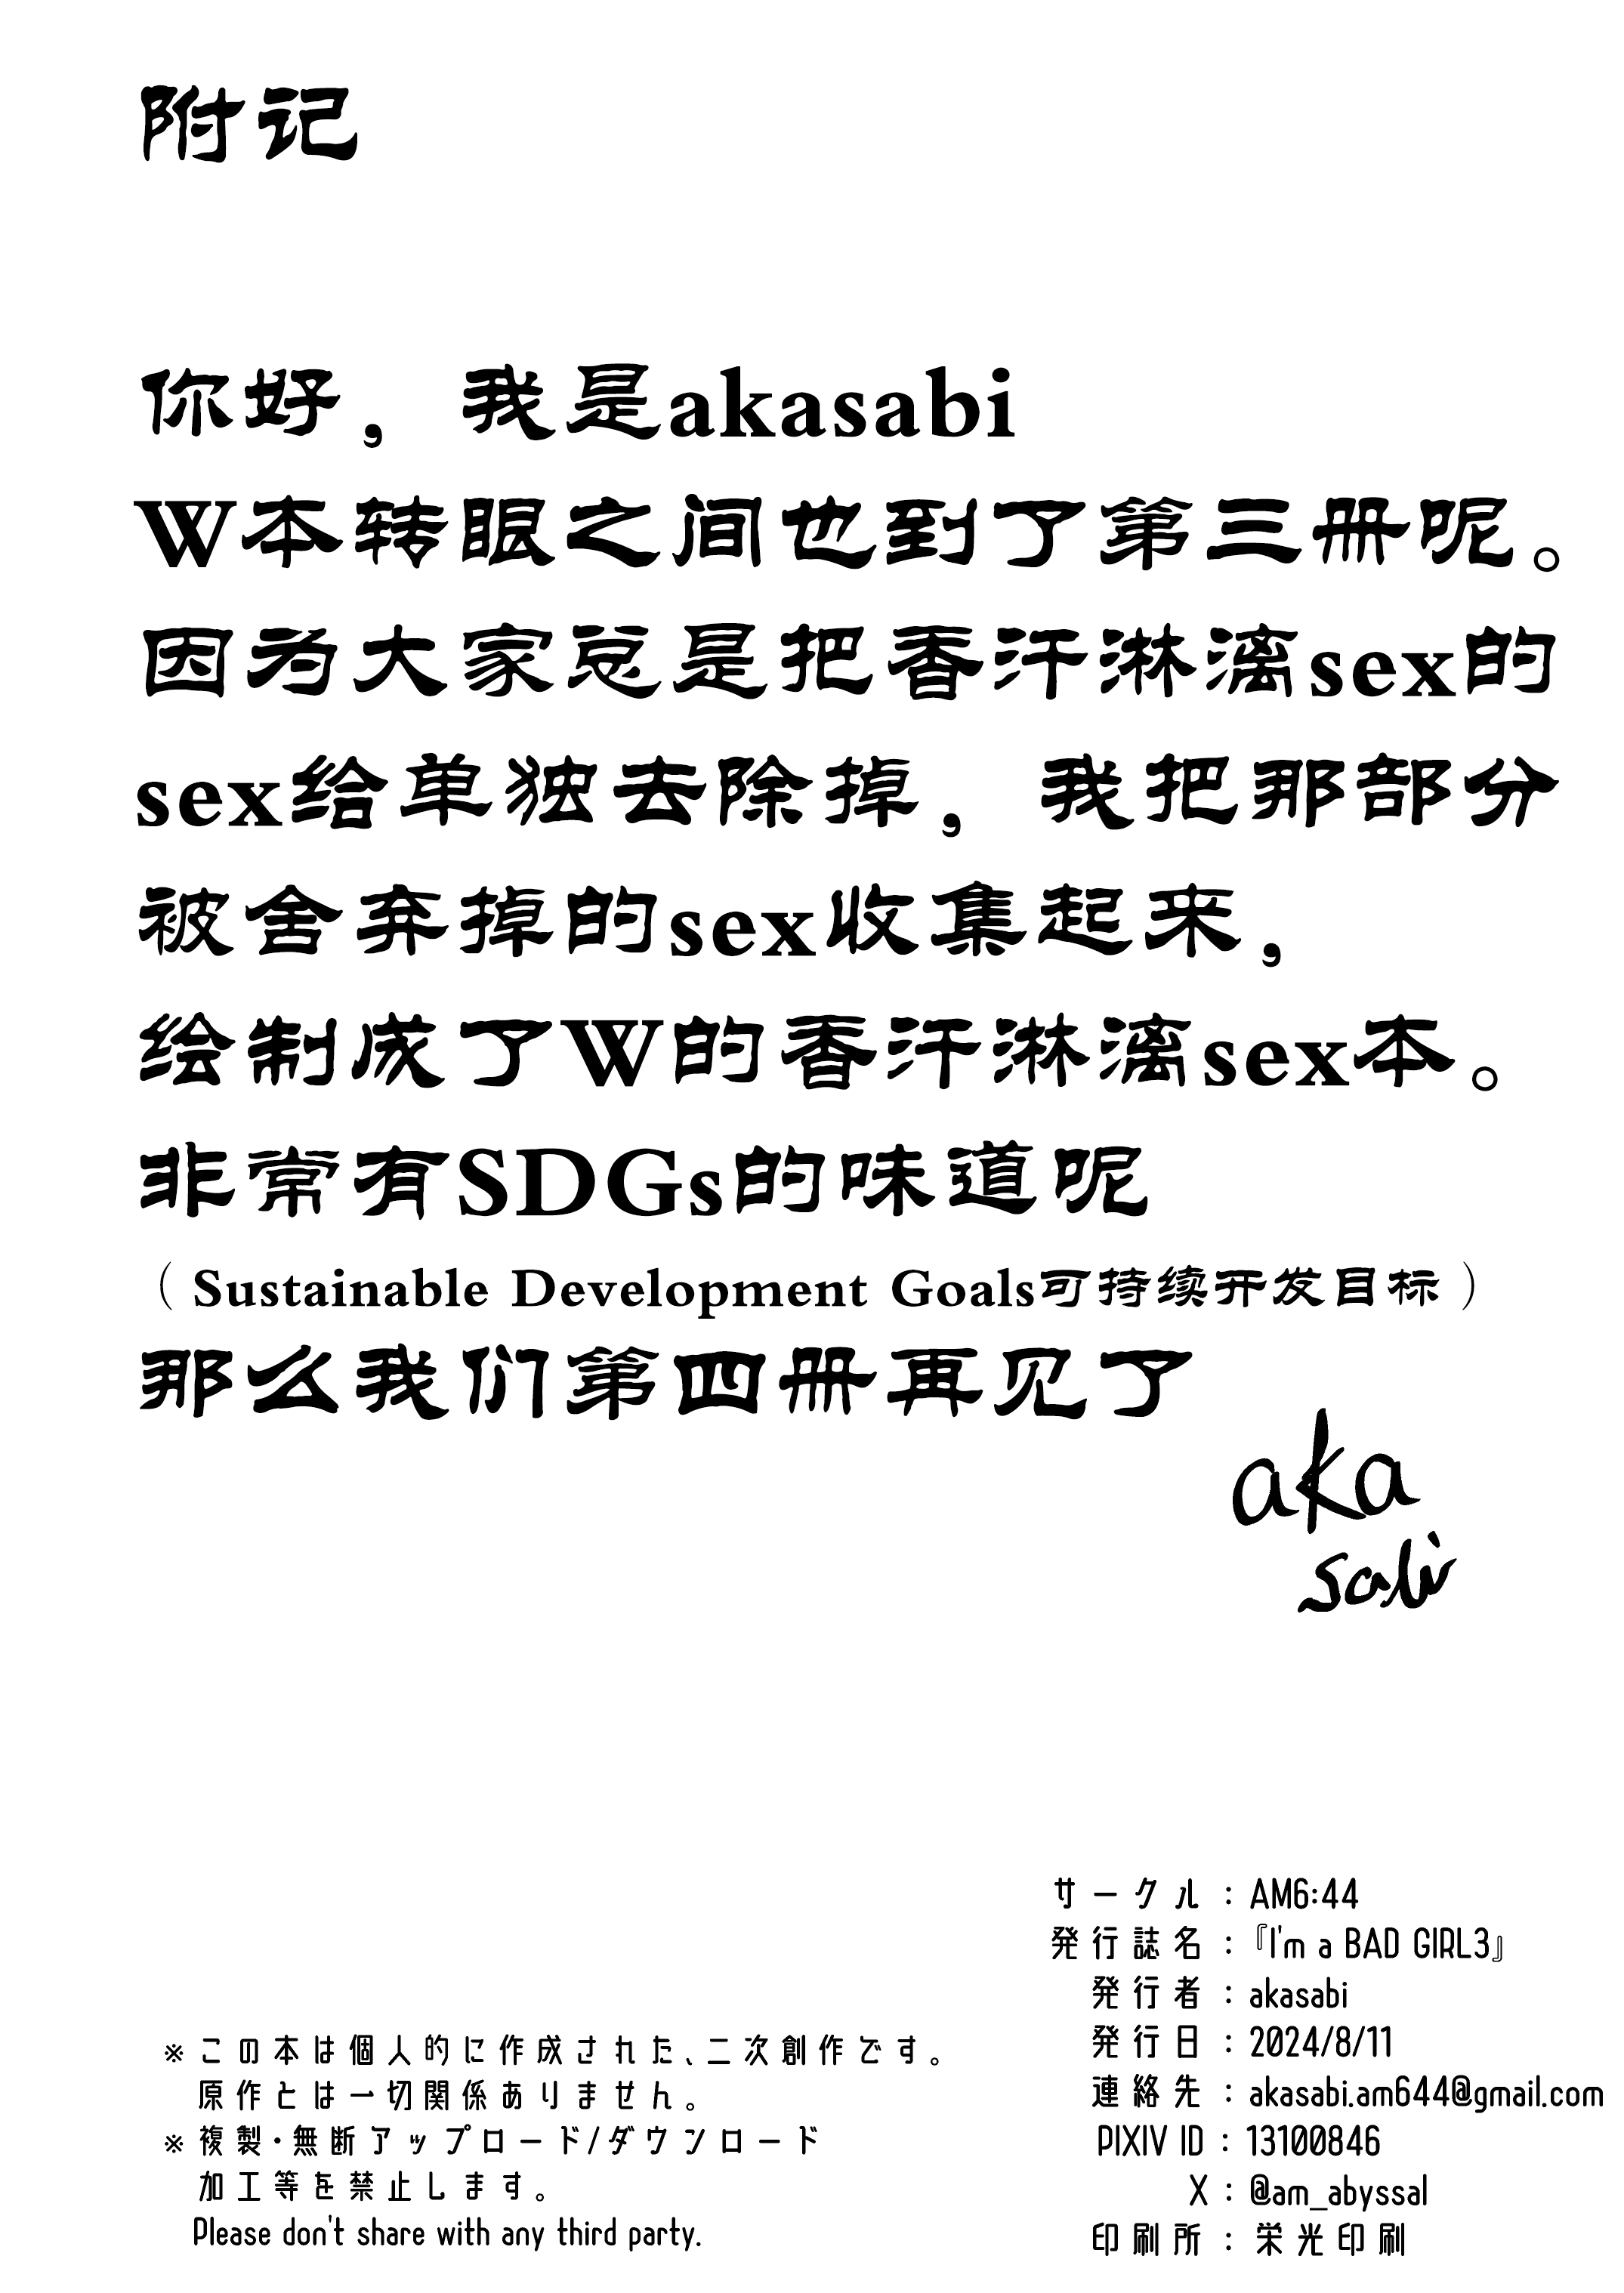 附记
你好，我是akasabi
W本转眼之间也到了第三册呢。
因为大家总是把香汗淋漓sex的
sex给单独去除掉，我把那部分
被舍弃掉的sex收集起来，
绘制成了W的香汗淋漓sex本。
非常有SDGs的味道呢
（Sustainable Development Goals可持续开发目标）
那么我们第四册再见了
aka
sabi
サークル：AM6:44
発行誌名：『I'm a BAD GIRL3』
発行者：akasabi
発行日：2024/8/11
連絡先：akasabi.am644@gmail.com
PIXIV ID：13100846
X：@am_abyssal
印刷所：栄光印刷
※この本は個人的に作成された、二次創作です。
原作とは一切関係ありません。
※複製・無断アップロード/ダウンロード
加工等を禁止します。
Please don't share with any third party.